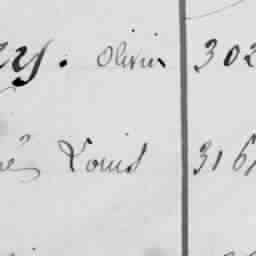 ey. Olivier 302
é Louis 316